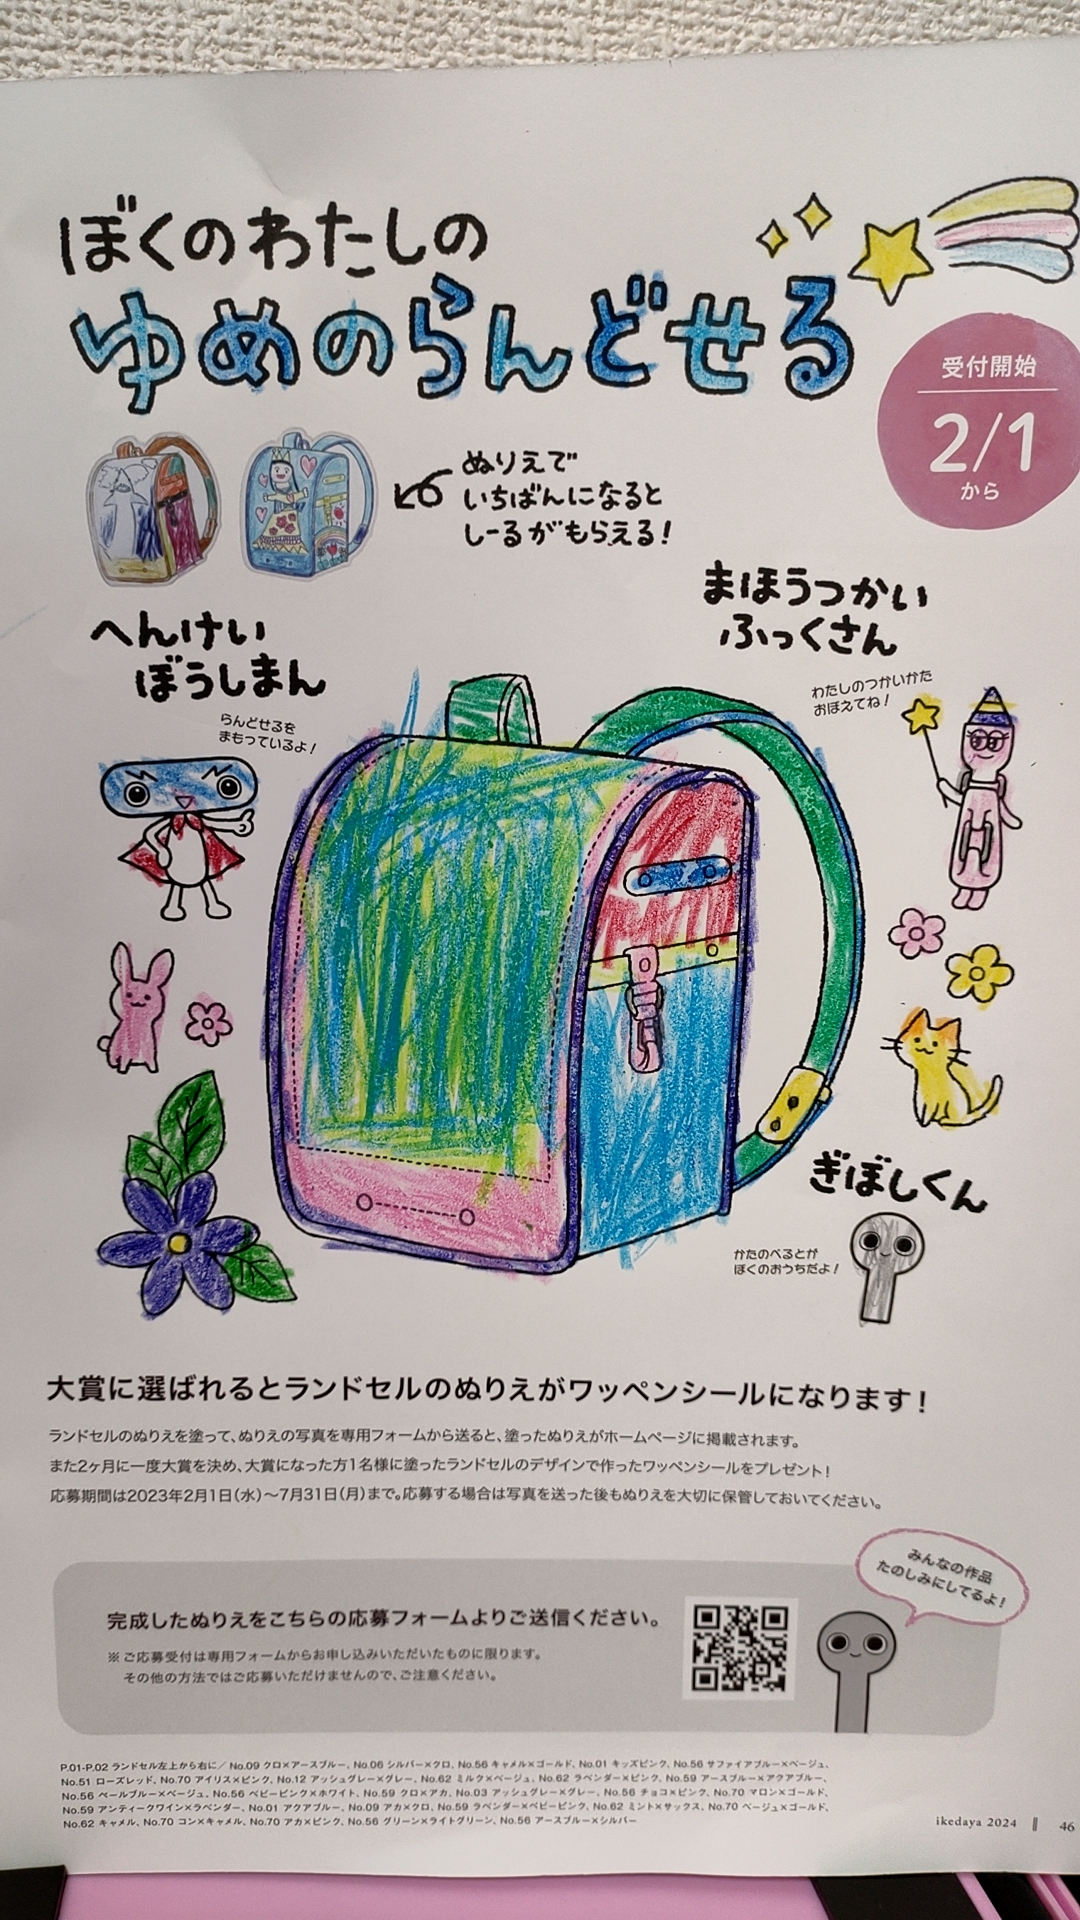 ぼくのわたしの
ゆめのらんどせる
受付開始
2/1
から
ぬりえで
いちばんになると
しーるがもらえる!
へんけい
ぼうしまん
らんどせるを
まもっているよ!
まほうつかい
ふっくさん
わたしのつかいかた
おぼえてね!
ぎぼしくん
かたのべるとが
ぼくのおうちだよ!
大賞に選ばれるとランドセルのぬりえがワッペンシールになります!
ランドセルのぬりえを塗って、ぬりえの写真を専用フォームから送ると、塗ったぬりえがホームページに掲載されます。
また2ヶ月に一度大賞を決め、大賞になった方1名様に塗ったランドセルのデザインで作ったワッペンシールをプレゼント!
応募期間は2023年2月1日(水)〜7月31日(月)まで。応募する場合は写真を送った後もぬりえを大切に保管しておいてください。
みんなの作品
たのしみにしてるよ!
完成したぬりえをこちらの応募フォームよりご送信ください。
※ご応募受付は専用フォームからお申し込みいただいたものに限ります。
その他の方法ではご応募いただけませんので、ご注意ください。
P.01-P.02 ランドセル左上から右に/ No.09 クロ×アースブルー、No.06 シルバー×クロ、No.56 キャメル×ゴールド、No.01 キッズピンク、No.56 サファイアブルー×ベージュ、
No.51 ローズレッド、No.70 アイリス×ピンク、No.12 アッシュグレー×グレー、No.62 ミルク×ベージュ、No.62 ラベンダー×ピンク、No.59 アースブルー×アクアブルー、
No.56 ペールブルー×ベージュ、No.56 ベビーピンク×ホワイト、No.59 クロ×アカ、No.03 アッシュグレー×グレー、No.56 チョコ×ピンク、No.70 マロン×ゴールド、
No.59 アンティークワイン×ラベンダー、No.01 アクアブルー、No.09 アカ×クロ、No.59 ラベンダー×ベビーピンク、No.62 ミント×サックス、No.70 ベージュ×ゴールド、
No.62 キャメル、No.70 コン×キャメル、No.70 アカ×ピンク、No.56 グリーン×ライトグリーン、No.56 アースブルー×シルバー
ikedaya 2024 46